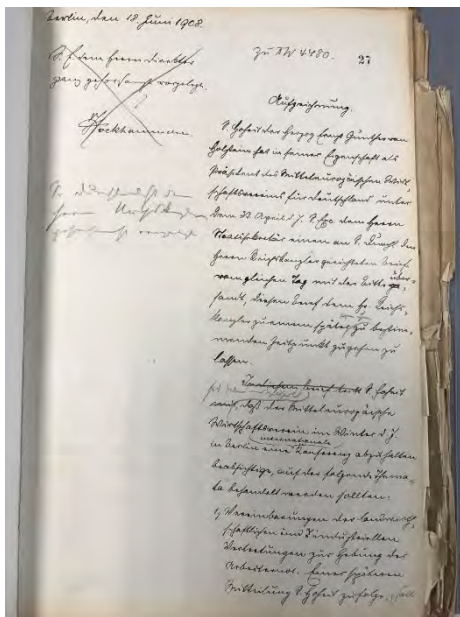 Berlin, den 18. Juni 1908.
zu IW 4480.
27
S. E. dem Herrn Direktor
ganz gehorsamst vorgelegt.
Aufzeichnung.
S. Hoheit der Herzog Ernst Günther von
Holstein hat in seiner Eigenschaft als
Präsident des Mitteleuropäischen Wirt-
schaftsvereins für Deutschland unter
dem 22 April d. J. S. Exz. dem Herrn
Staatssekretär einen an S. Durchl. den
Herrn Reichskanzler gerichteten Brief
vom gleichen Tag mit der Bitte über-
sandt, diesen Brief dem H. Reichs-
kanzler zu einem später zu bestim-
menden Zeitpunkt zugehen zu
lassen.
In diesem Brief teilt S. Hoheit
mit, daß der Mitteleuropäische
Wirtschaftsverein im Winter d. J.
in Berlin eine internationale Konferenz abzuhalten
beabsichtige, auf der folgende Thema-
ta behandelt werden sollten:
1) Vereinbarungen der landwirt-
schaftlichen und industriellen
Vertretungen zur Hebung der
Arbeiternot. Einer späteren
Mitteilung S. Hoheit zufolge, soll